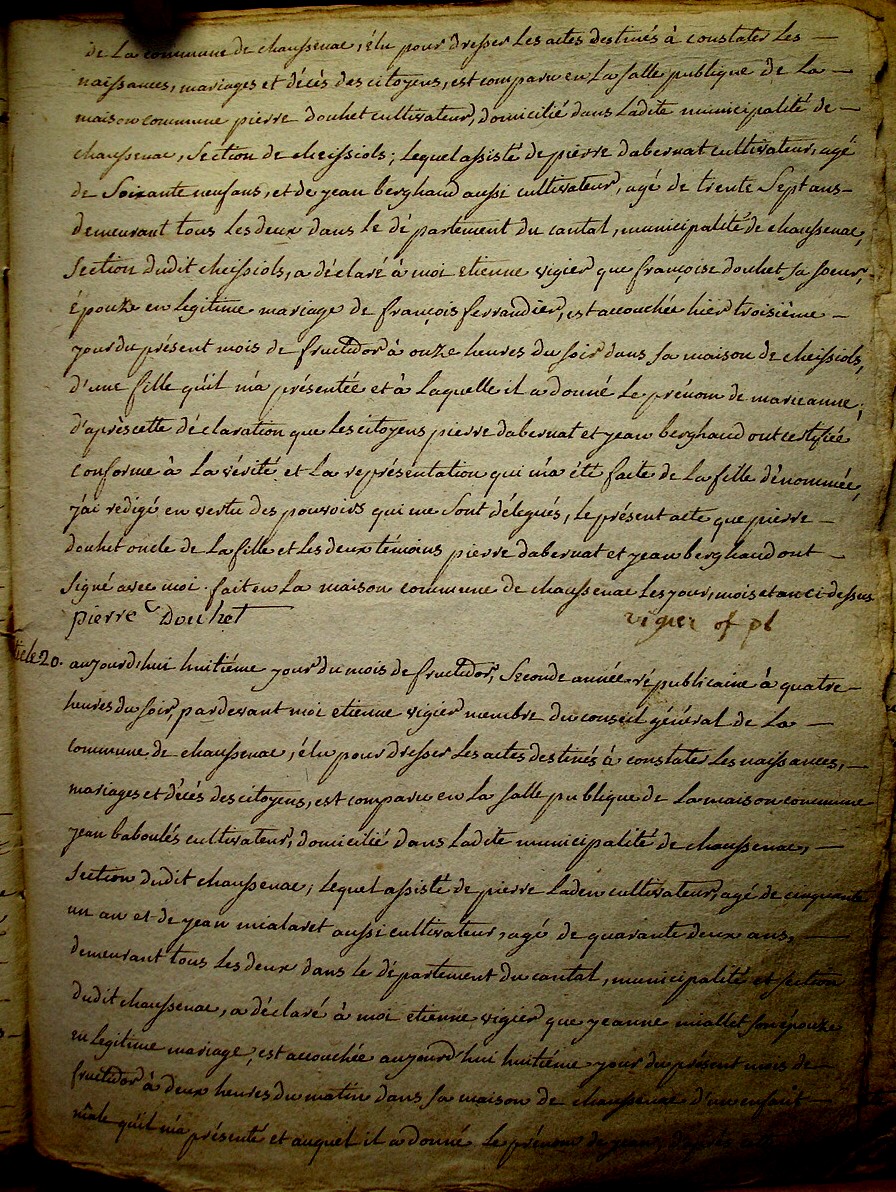 de La commune de chaussenac, élu pour dresser Les actes destinés à constater Les —
naissances, mariages et décés des citoyens, est comparu en La salle publique de La —
maison commune pierre douhet cultivateur, domicilié dans Ladite municipalité de —
chaussenac, Section de cheissiols; Lequel assisté de pierre dabernat cultivateur, agé
de Soixante neuf ans, et de jean berghaud aussi cultivateur, agé de trente Sept ans —
demeurant tous Les deux dans Le département du cantal, municipalité de chaussenac,
Section dudit cheissiols, a déclaré à moi etienne vigier que françoise douhet sa soeur,
épouze en Legitime mariage de françois ferrandier, est accouchée hier troisiéme —
jour du présent mois de fructidor à onze heures du soir dans sa maison de cheissiols,
d'une fille qu'il m'a présentée et à Laquelle il a donné Le prénom de marieanne;
d'aprés cette déclaration que Les citoyens pierre dabernat et jean berghaud ont certifiée
conforme à La vérité et La représentation qui m'a été faite de La fille dénommée,
j'ai rédigé en vertu des pouvoirs qui me Sont délegués, Le présent acte que pierre —
douhet oncle de La fille et Les deux témoins pierre dabernat et jean berghaud ont —
Signé avec moi. fait en La maison commune de chaussenac Les jour, mois et an ci dessus
pierre Douhet vigier of pb
20. aujourd'hui huitiéme jour du mois de fructidor, Seconde année républicaine à quatre —
heures du soir, pardevant moi etienne vigier membre du conseil général de La —
commune de chaussenac, élu pour dresser Les actes destinés à constater Les naissances, —
mariages et décés des citoyens, est comparu en La salle publique de La maison commune
jean baboulés cultivateur, domicilié dans Ladite municipalité de chaussenac, —
Section dudit chaussenac, Lequel assisté de pierre Laden cultivateur, agé de cinquante
un an et de jean mialaret aussi cultivateur, agé de quarante deux ans, —
demeurant tous Les deux dans Le département du cantal, municipalité et section
dudit chaussenac, a déclaré à moi etienne vigier que jeanne miallet son épouze
en Legitime mariage, est accouchée aujourd'hui huitiéme jour du présent mois de
fructidor à deux heures du matin dans sa maison de chaussenac d'un enfant —
mâle qu'il m'a présenté et auquel il a donné Le prénom de jean,